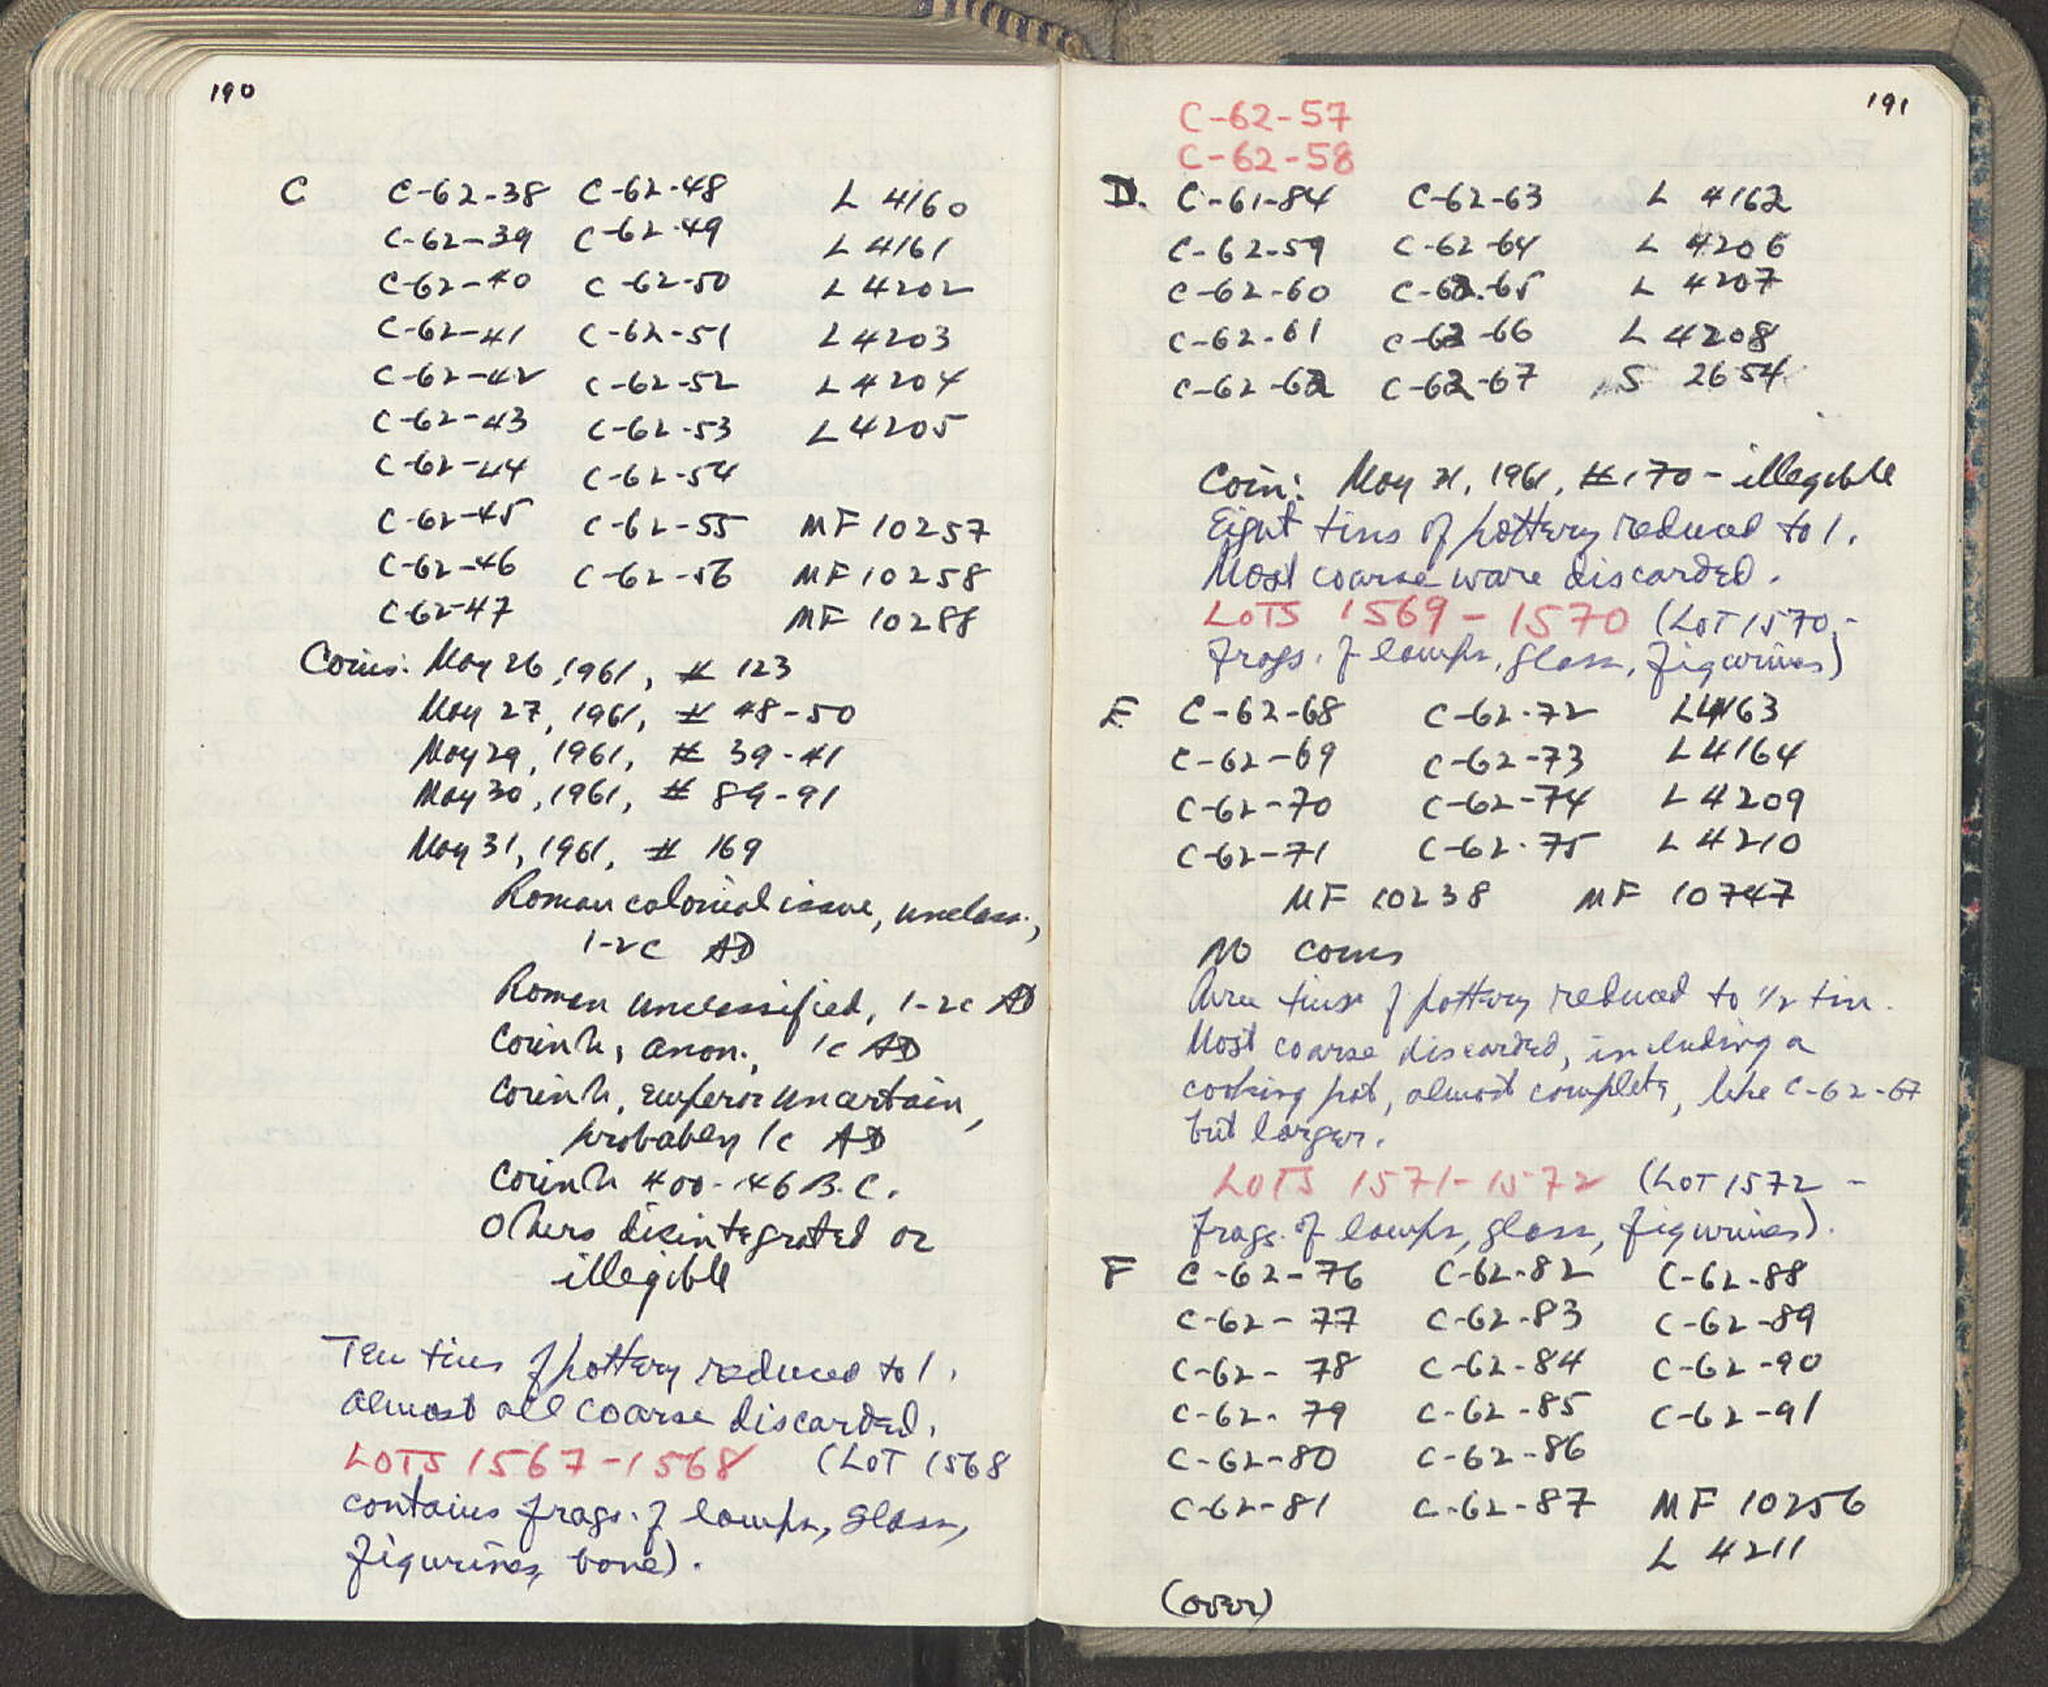 190
C C-62-38 C-62-48 L 4160
C-62-39 C-62-49 L 4161
C-62-40 C-62-50 L 4202
C-62-41 C-62-51 L 4203
C-62-42 C-62-52 L 4204
C-62-43 C-62-53 L 4205
C-62-44 C-62-54
C-62-45 C-62-55 MF 10257
C-62-46 C-62-56 MF 10258
C-62-47 MF 10288
Coins: May 26, 1961, # 123
May 27, 1961, # 48-50
May 29, 1961, # 39-41
May 30, 1961, # 89-91
May 31, 1961, # 169
Roman colonial issue, unclass.,
1-2c AD
Roman unclassified, 1-2c AD
Corinth, anon., 1c AD
Corinth, Emperor uncertain,
probably 1c AD
Corinth 400-146 B.C.
Others disintegrated or
illegible
Ten tins of pottery reduced to 1.
Almost all coarse discarded.
LOTS 1567-1568 (LOT 1568
contains frags. of lamps, glass,
figurines, bone).
191
C-62-57
C-62-58
D. C-61-84 C-62-63 L 4162
C-62-59 C-62-64 L 4206
C-62-60 C-62-65 L 4207
C-62-61 C-62-66 L 4208
C-62-62 C-62-67 S 2654
Coin: May 31, 1961, #170 - illegible
Eight tins of pottery reduced to 1.
Most coarse ware discarded.
LOTS 1569-1570 (LOT 1570 -
frags. of lamps, glass, figurines)
E C-62-68 C-62-72 L 4163
C-62-69 C-62-73 L 4164
C-62-70 C-62-74 L 4209
C-62-71 C-62-75 L 4210
MF 10238 MF 10747
No coins
tins of pottery reduced to 1/2 tin.
Most coarse discarded, including a
cooking pot, almost complete, like C-62-67
but larger.
LOTS 1571-1572 (LOT 1572 -
frags. of lamps, glass, figurines).
F C-62-76 C-62-82 C-62-88
C-62-77 C-62-83 C-62-89
C-62-78 C-62-84 C-62-90
C-62-79 C-62-85 C-62-91
C-62-80 C-62-86
C-62-81 C-62-87 MF 10256
L 4211
(over)